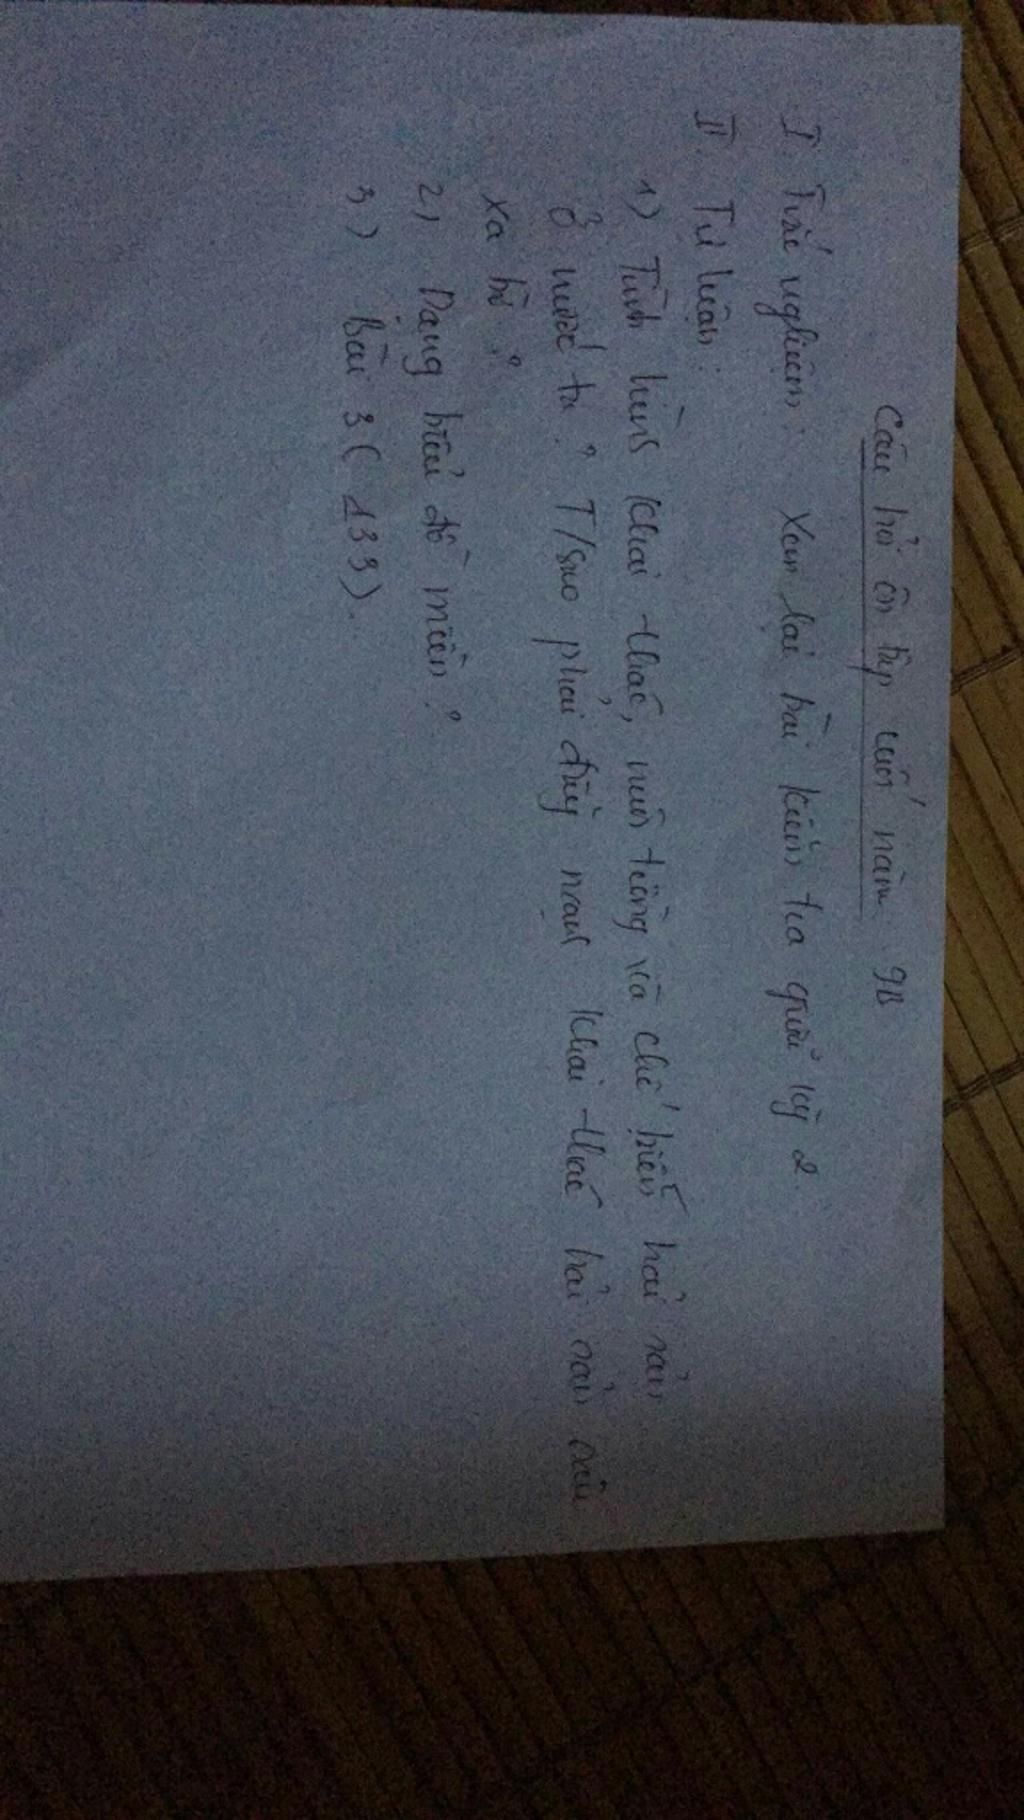 Câu hỏi ôn tập cuối năm: 9B
I. Trắc nghiệm: Xem lại bài kiểm tra giữa kỳ 2.
II. Tự luận:
1) Tình hình khai thác, nuôi trồng và chế biến hải sản
ở nước ta? T/sao phải đẩy mạnh khai thác hải sản
xa bờ?
2) Dạng biểu đồ miền?
3) Bài 3 (133).